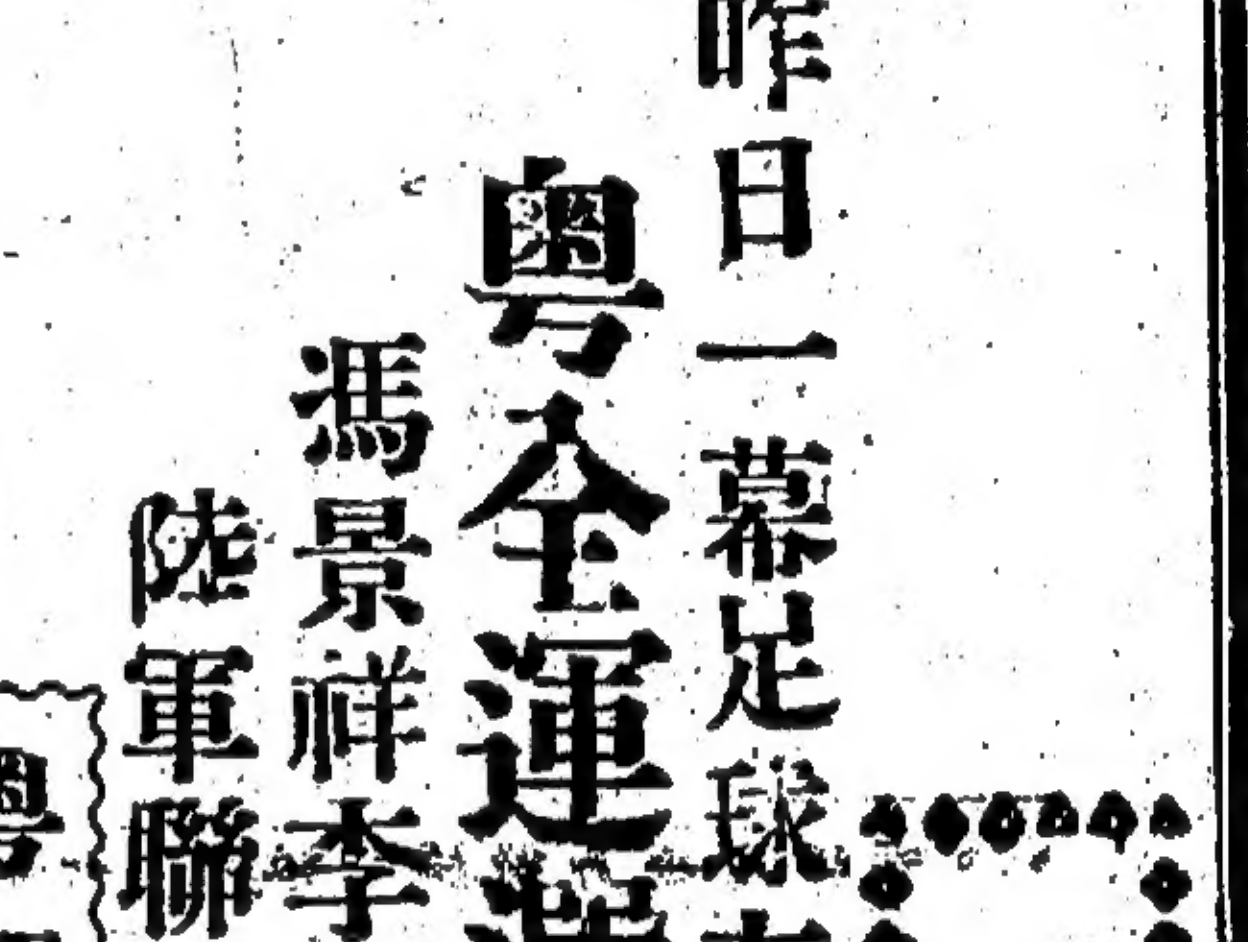 昨日一幕足球
粵全運
馮景祥李
陸軍聯
粵